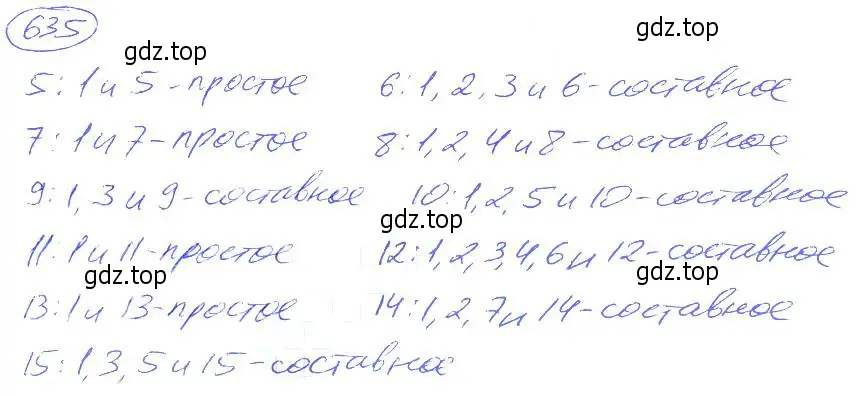 635
gdz.top
gdz.top
5: 1 и 5 - простое 6: 1, 2, 3 и 6 - составное
7: 1 и 7 - простое 8: 1, 2, 4 и 8 - составное
9: 1, 3 и 9 - составное 10: 1, 2, 5 и 10 - составное
gdz.top
11: 1 и 11 - простое 12: 1, 2, 3, 4, 6 и 12 - составное
gdz.top
gdz.top
13: 1 и 13 - простое 14: 1, 2, 7 и 14 - составное
15: 1, 3, 5 и 15 - составное